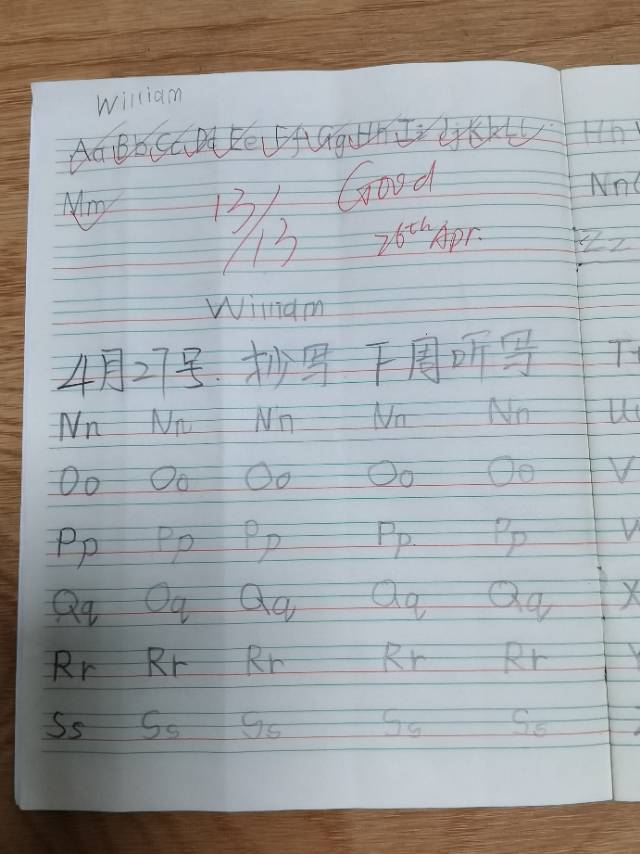 William
Aa Bb Cc Dd Ee Ff Gg Hh Ii Jj Kk Ll
Mm 13/13 Good
26th Apr.
William
4月27号. 抄写 下周听写
Nn Nn Nn Nn Nn
Oo Oo Oo Oo Oo
Pp Pp Pp Pp Pp
Qq Qq Qq Qq Qq
Rr Rr Rr Rr Rr
Ss Ss Ss Ss Ss
Hh
Nn
Zz